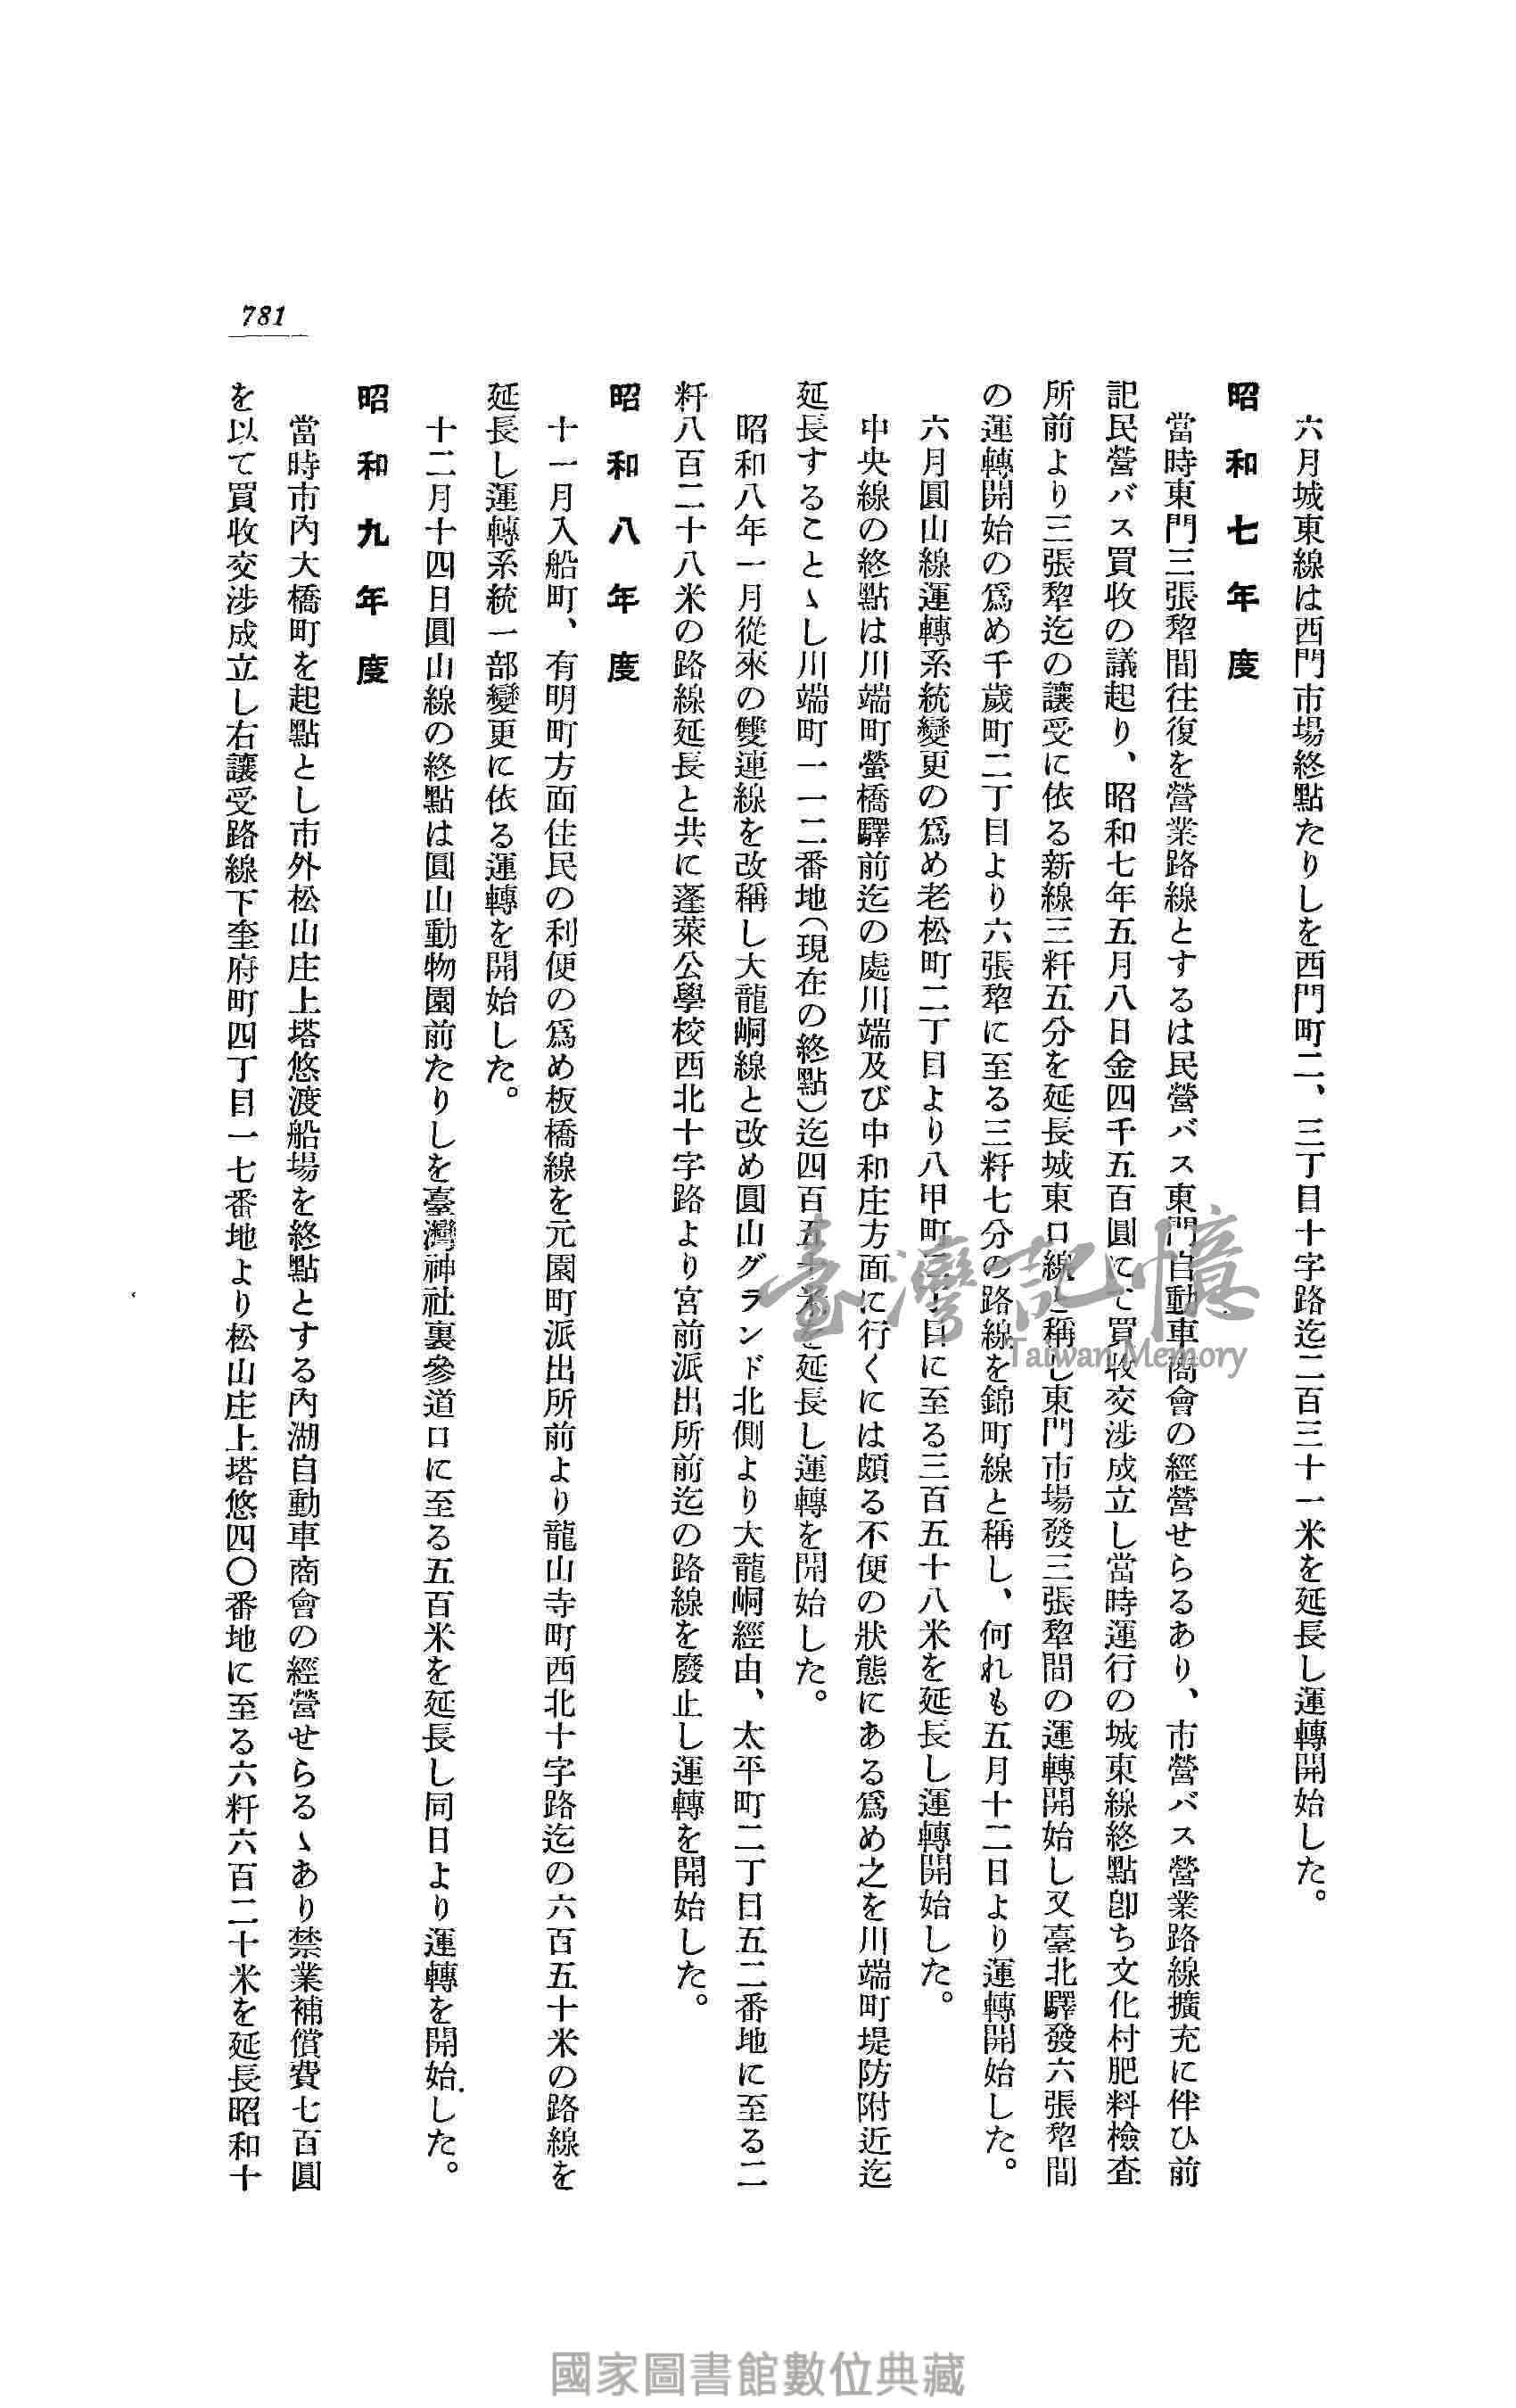 六月城東線は西門市場終點たりしを西門町二、三丁目十字路迄二百三十一米を延長し運轉開始した。
昭和七年度
當時東門三張犂間往復を營業路線とするは民營バス東門自動車商會の經營せらるあり、市營バス營業路線擴充に伴ひ前
記民營バス買收の議起り、昭和七年五月八日金四千五百圓にて買收交涉成立し當時運行の城東線終點卽ち文化村肥料檢査
所前より三張犂迄の讓受に依る新線三粁五分を延長城東口線と稱し東門市場發三張犂間の運轉開始し又臺北驛發六張犂間
の運轉開始の爲め千歲町二丁目より六張犂に至る三粁七分の路線を錦町線と稱し、何れも五月十二日より運轉開始した。
六月圓山線運轉系統變更の爲め老松町二丁目より八甲町二丁目に至る三百五十八米を延長し運轉開始した。
中央線の終點は川端町螢橋驛前迄の處川端及び中和庄方面に行くには頗る不便の狀態にある爲め之を川端町堤防附近迄
延長することゝし川端町一一二番地(現在の終點)迄四百五十米を延長し運轉を開始した。
昭和八年一月從來の雙連線を改稱し大龍峒線と改め圓山グランド北側より大龍峒經由、太平町二丁目五二番地に至る二
粁八百二十八米の路線延長と共に蓬萊公學校西北十字路より宮前派出所前迄の路線を廢止し運轉を開始した。
昭和八年度
十一月入船町、有明町方面住民の利便の爲め板橋線を元園町派出所前より龍山寺町西北十字路迄の六百五十米の路線を
延長し運轉系統一部變更に依る運轉を開始した。
十二月十四日圓山線の終點は圓山動物園前たりしを臺灣神社裏參道口に至る五百米を延長し同日より運轉を開始した。
昭和九年度
當時市內大橋町を起點とし市外松山庄上塔悠渡船場を終點とする內湖自動車商會の經營せらるゝあり禁業補償費七百圓
を以て買收交涉成立し右讓受路線下奎府町四丁目一七番地より松山庄上塔悠四〇番地に至る六粁六百二十米を延長昭和十
781
臺灣記憶
Taiwan Memory
國家圖書館數位典藏